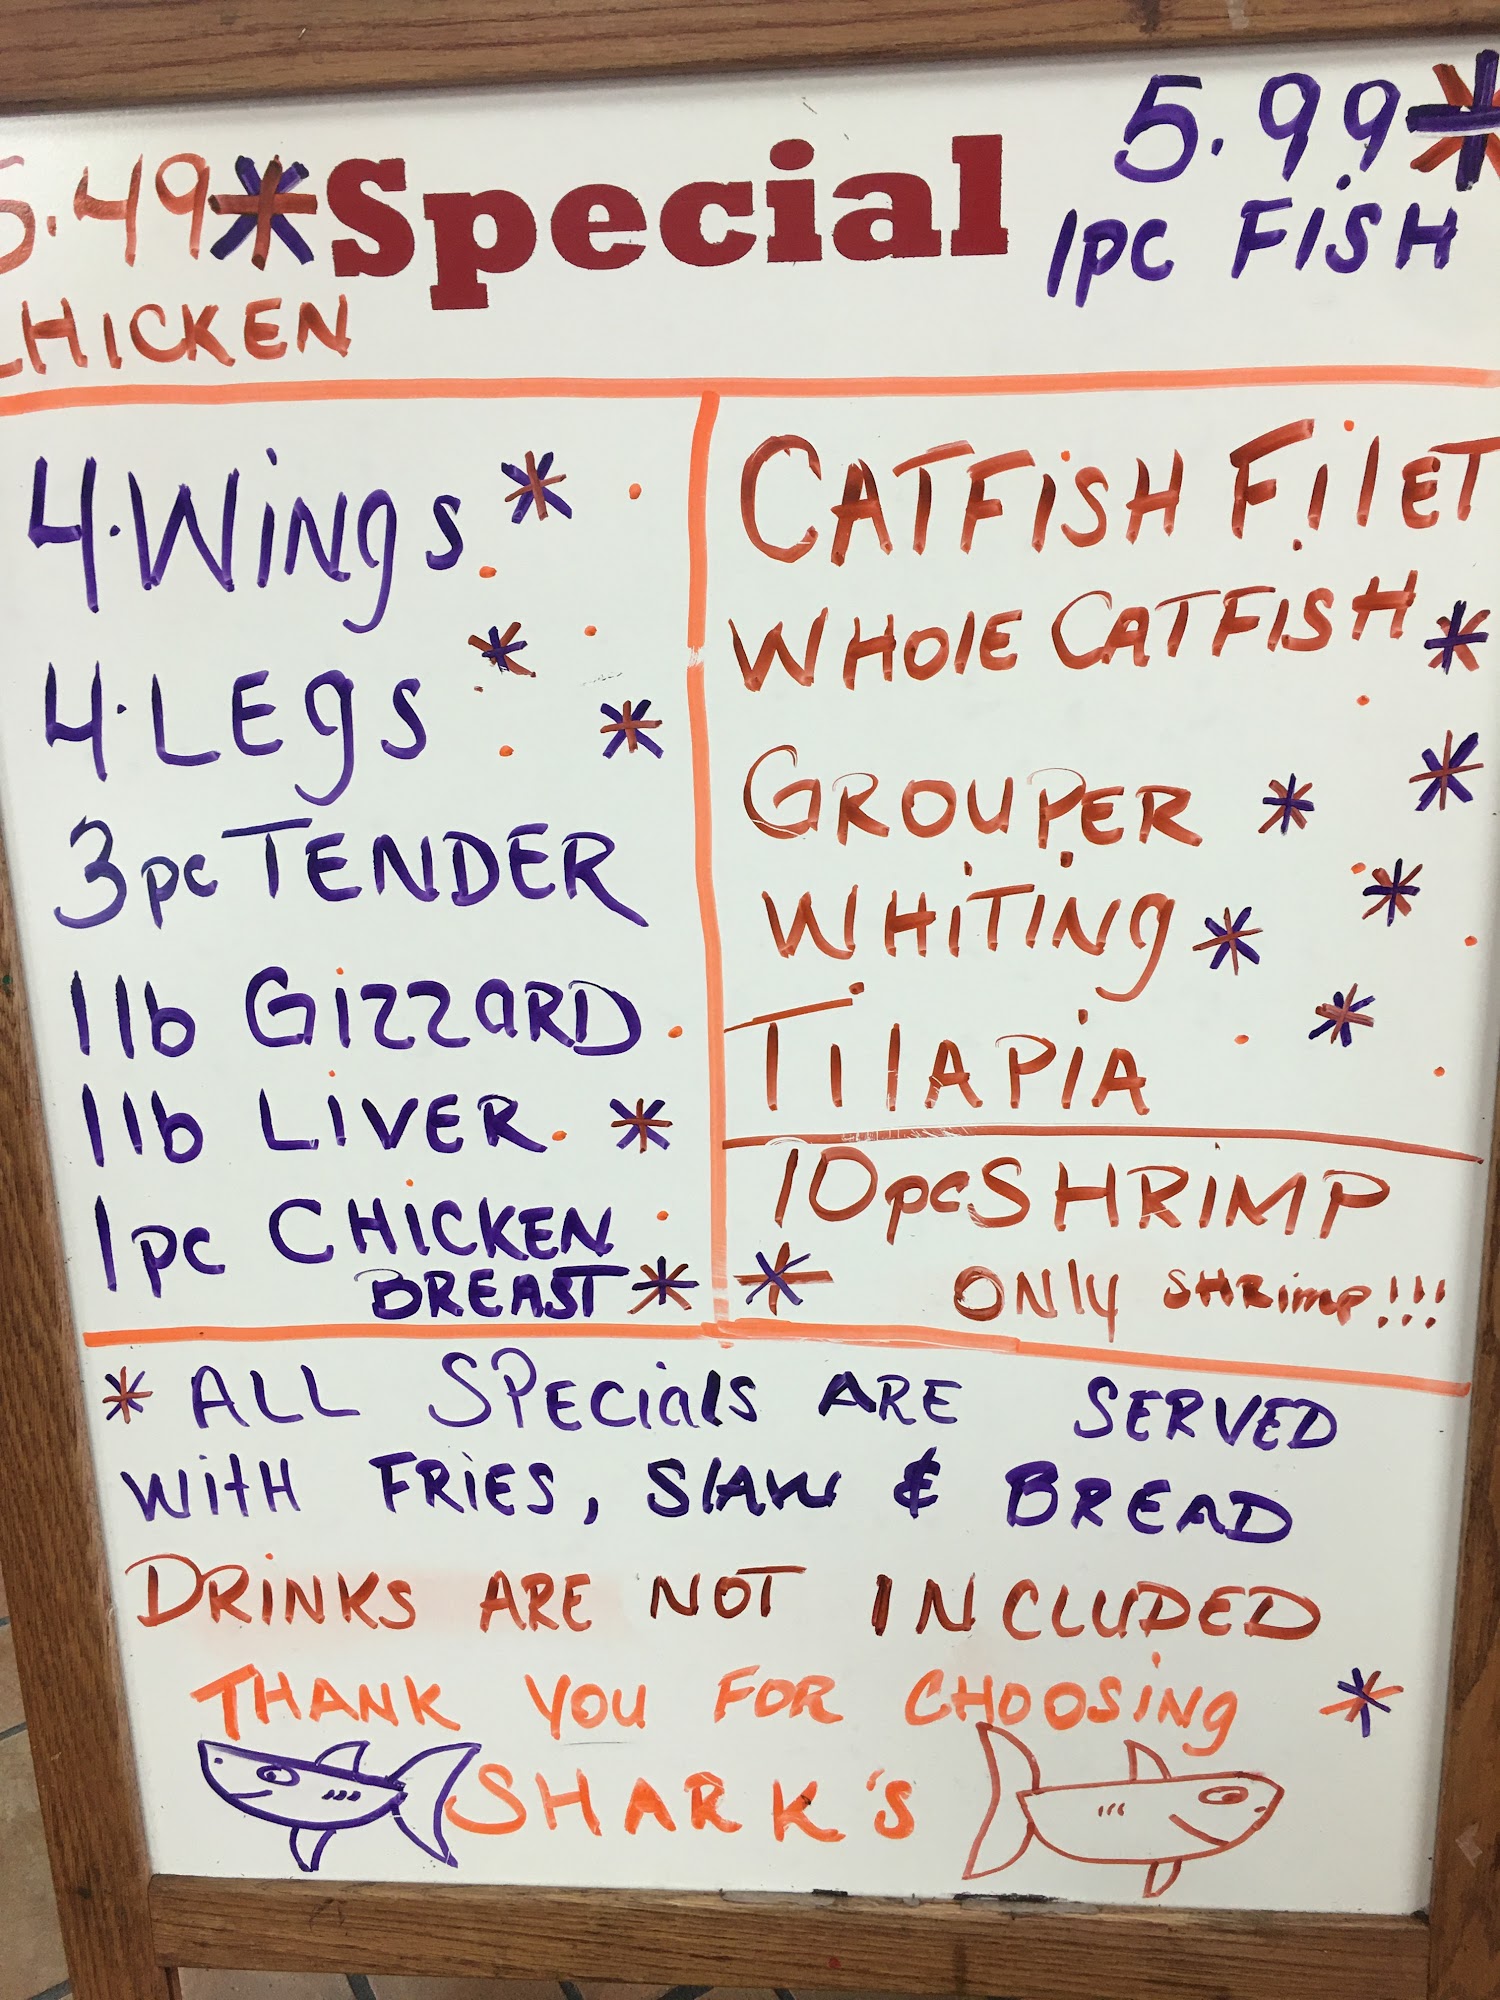 5.49 Special 5.99
CHICKEN 1pc FISH
4. Wings
4. LEgs
3pc TENDER
1lb GizzaRD
1lb LiVER
1pc CHiCKEN
BREAST
CATFiSH FilET
WHOlE CATFISH
GROUPER
WHiTiNg
TilAPiA
10pc SHRiMP
ONly SHRimp!!!
* ALL SPEcials ARE SERVED
WitH FRiES, SlAw & BREAD
DRiNKS ARE NOT INCLUDED
THANK YOU FOR CHOOSiNg
SHARK'S